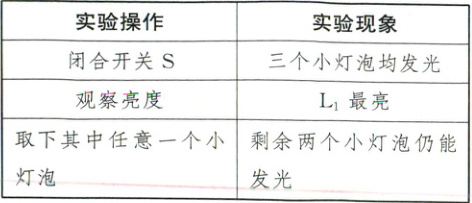 实验操作 实验现象
闭合开关 S 三个小灯泡均发光
观察亮度 L₁ 最亮
取下其中任意一个小 剩余两个小灯泡仍能
灯泡 发光